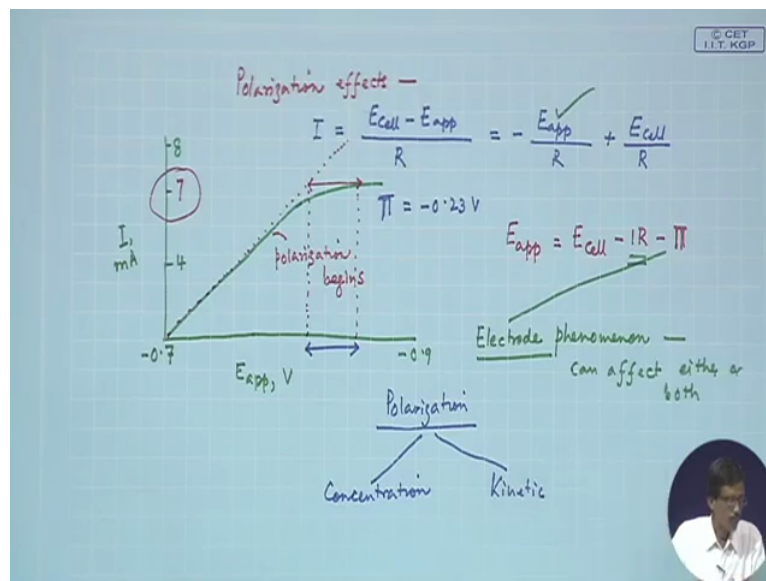 © CET
I.I.T. KGP
Polarization effects —
I = (E_cell − E_app)/R = − E_app/R + E_cell/R
8
7
I,
mA
4
π = −0.23 V
polarization
begins
E_app = E_cell − IR − π
−0.7
−0.9
E_app, V
Electrode phenomenon —
can affect either or
both
Polarization
Concentration
Kinetic